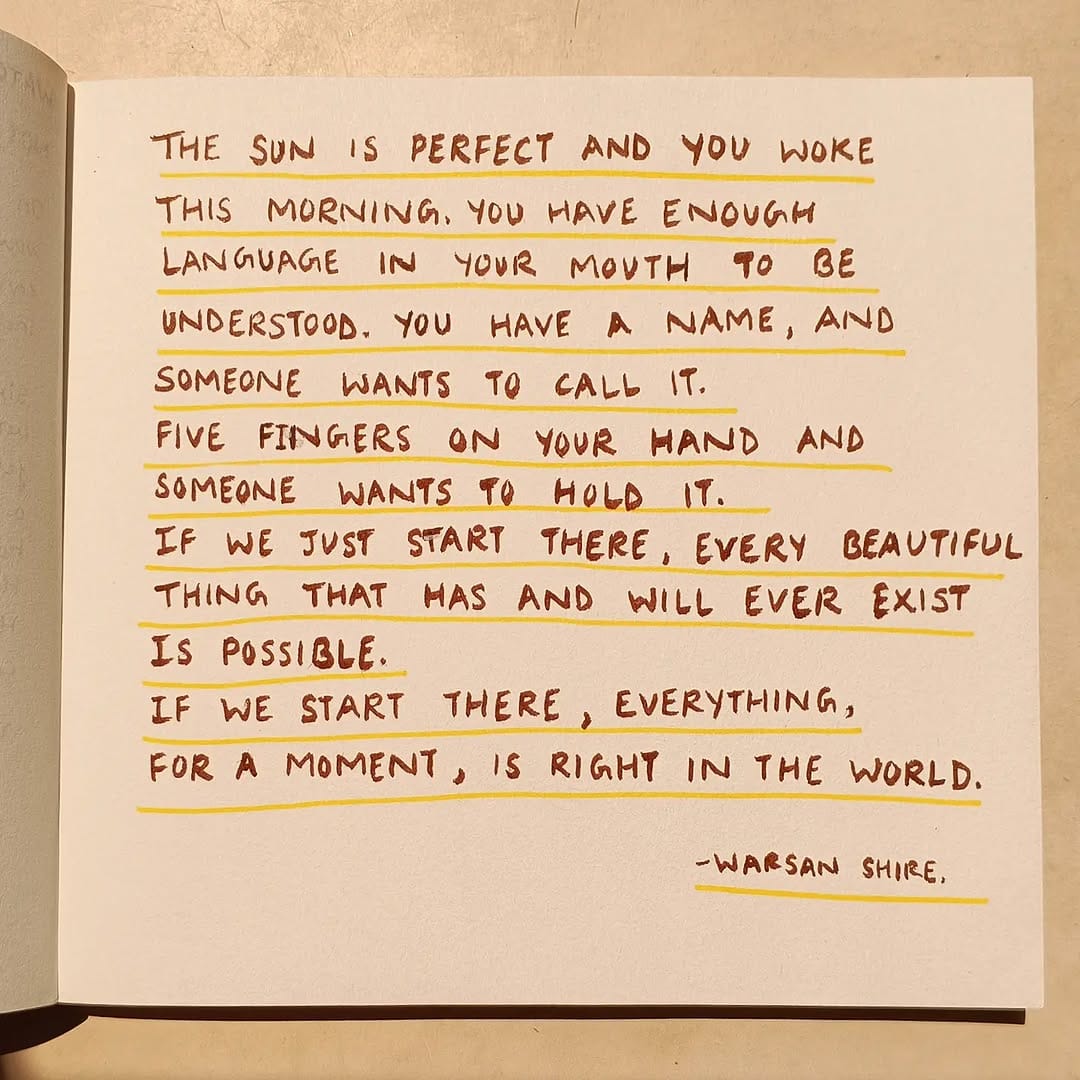 THE SUN IS PERFECT AND YOU WOKE
THIS MORNING. YOU HAVE ENOUGH
LANGUAGE IN YOUR MOUTH TO BE
UNDERSTOOD. YOU HAVE A NAME, AND
SOMEONE WANTS TO CALL IT.
FIVE FINGERS ON YOUR HAND AND
SOMEONE WANTS TO HOLD IT.
IF WE JUST START THERE, EVERY BEAUTIFUL
THING THAT HAS AND WILL EVER EXIST
IS POSSIBLE.
IF WE START THERE, EVERYTHING,
FOR A MOMENT, IS RIGHT IN THE WORLD.
-WARSAN SHIRE.